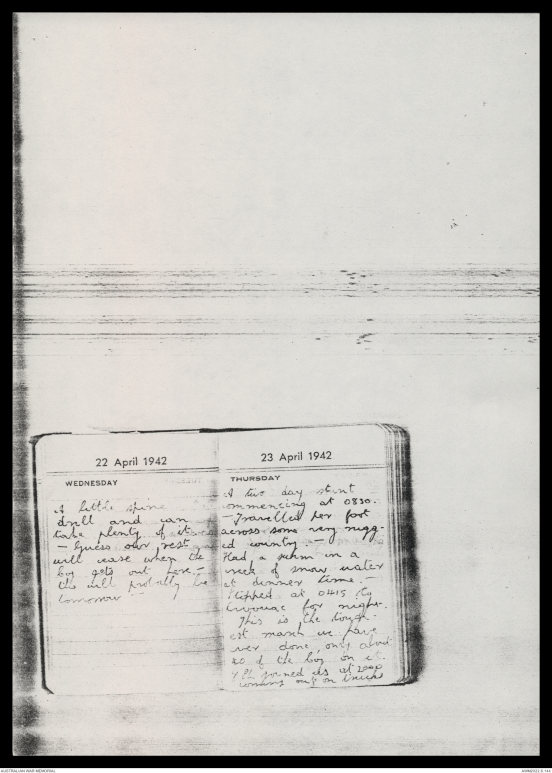 22 April 1942
WEDNESDAY
A little spine
drill and can
take plenty of it
- Guess our rest
will cease when the
boy gets out here -
the will probably be
tomorrow
23 April 1942
THURSDAY
A two day stunt
commencing at 0830.
- Travelled per foot
across some very rugg-
ed country. -
Had a swim in a
creek of snow water
at dinner time. -
Stopped at 0415 to
bivouac for night.
This is the tough-
est march we have
ever done, only about
20 of the boy on it.
joined us at 2000
coming out on truck
AUSTRALIAN WAR MEMORIAL